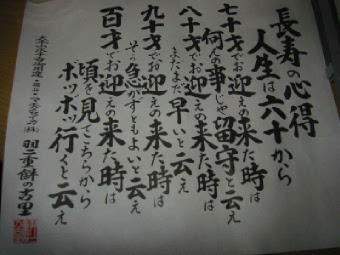 長寿の心得
人生は六十から
七十才でお迎えの来た時は
何んの事じゃ留守と云え
八十才でお迎えの来た時は
まだまだ早いと云え
九十才でお迎えの来た時は
そう急がずともよいと云え
百才でお迎えの来た時は
頃を見てこちらから
ボツボツ行くと云え
羽二重餅の古里